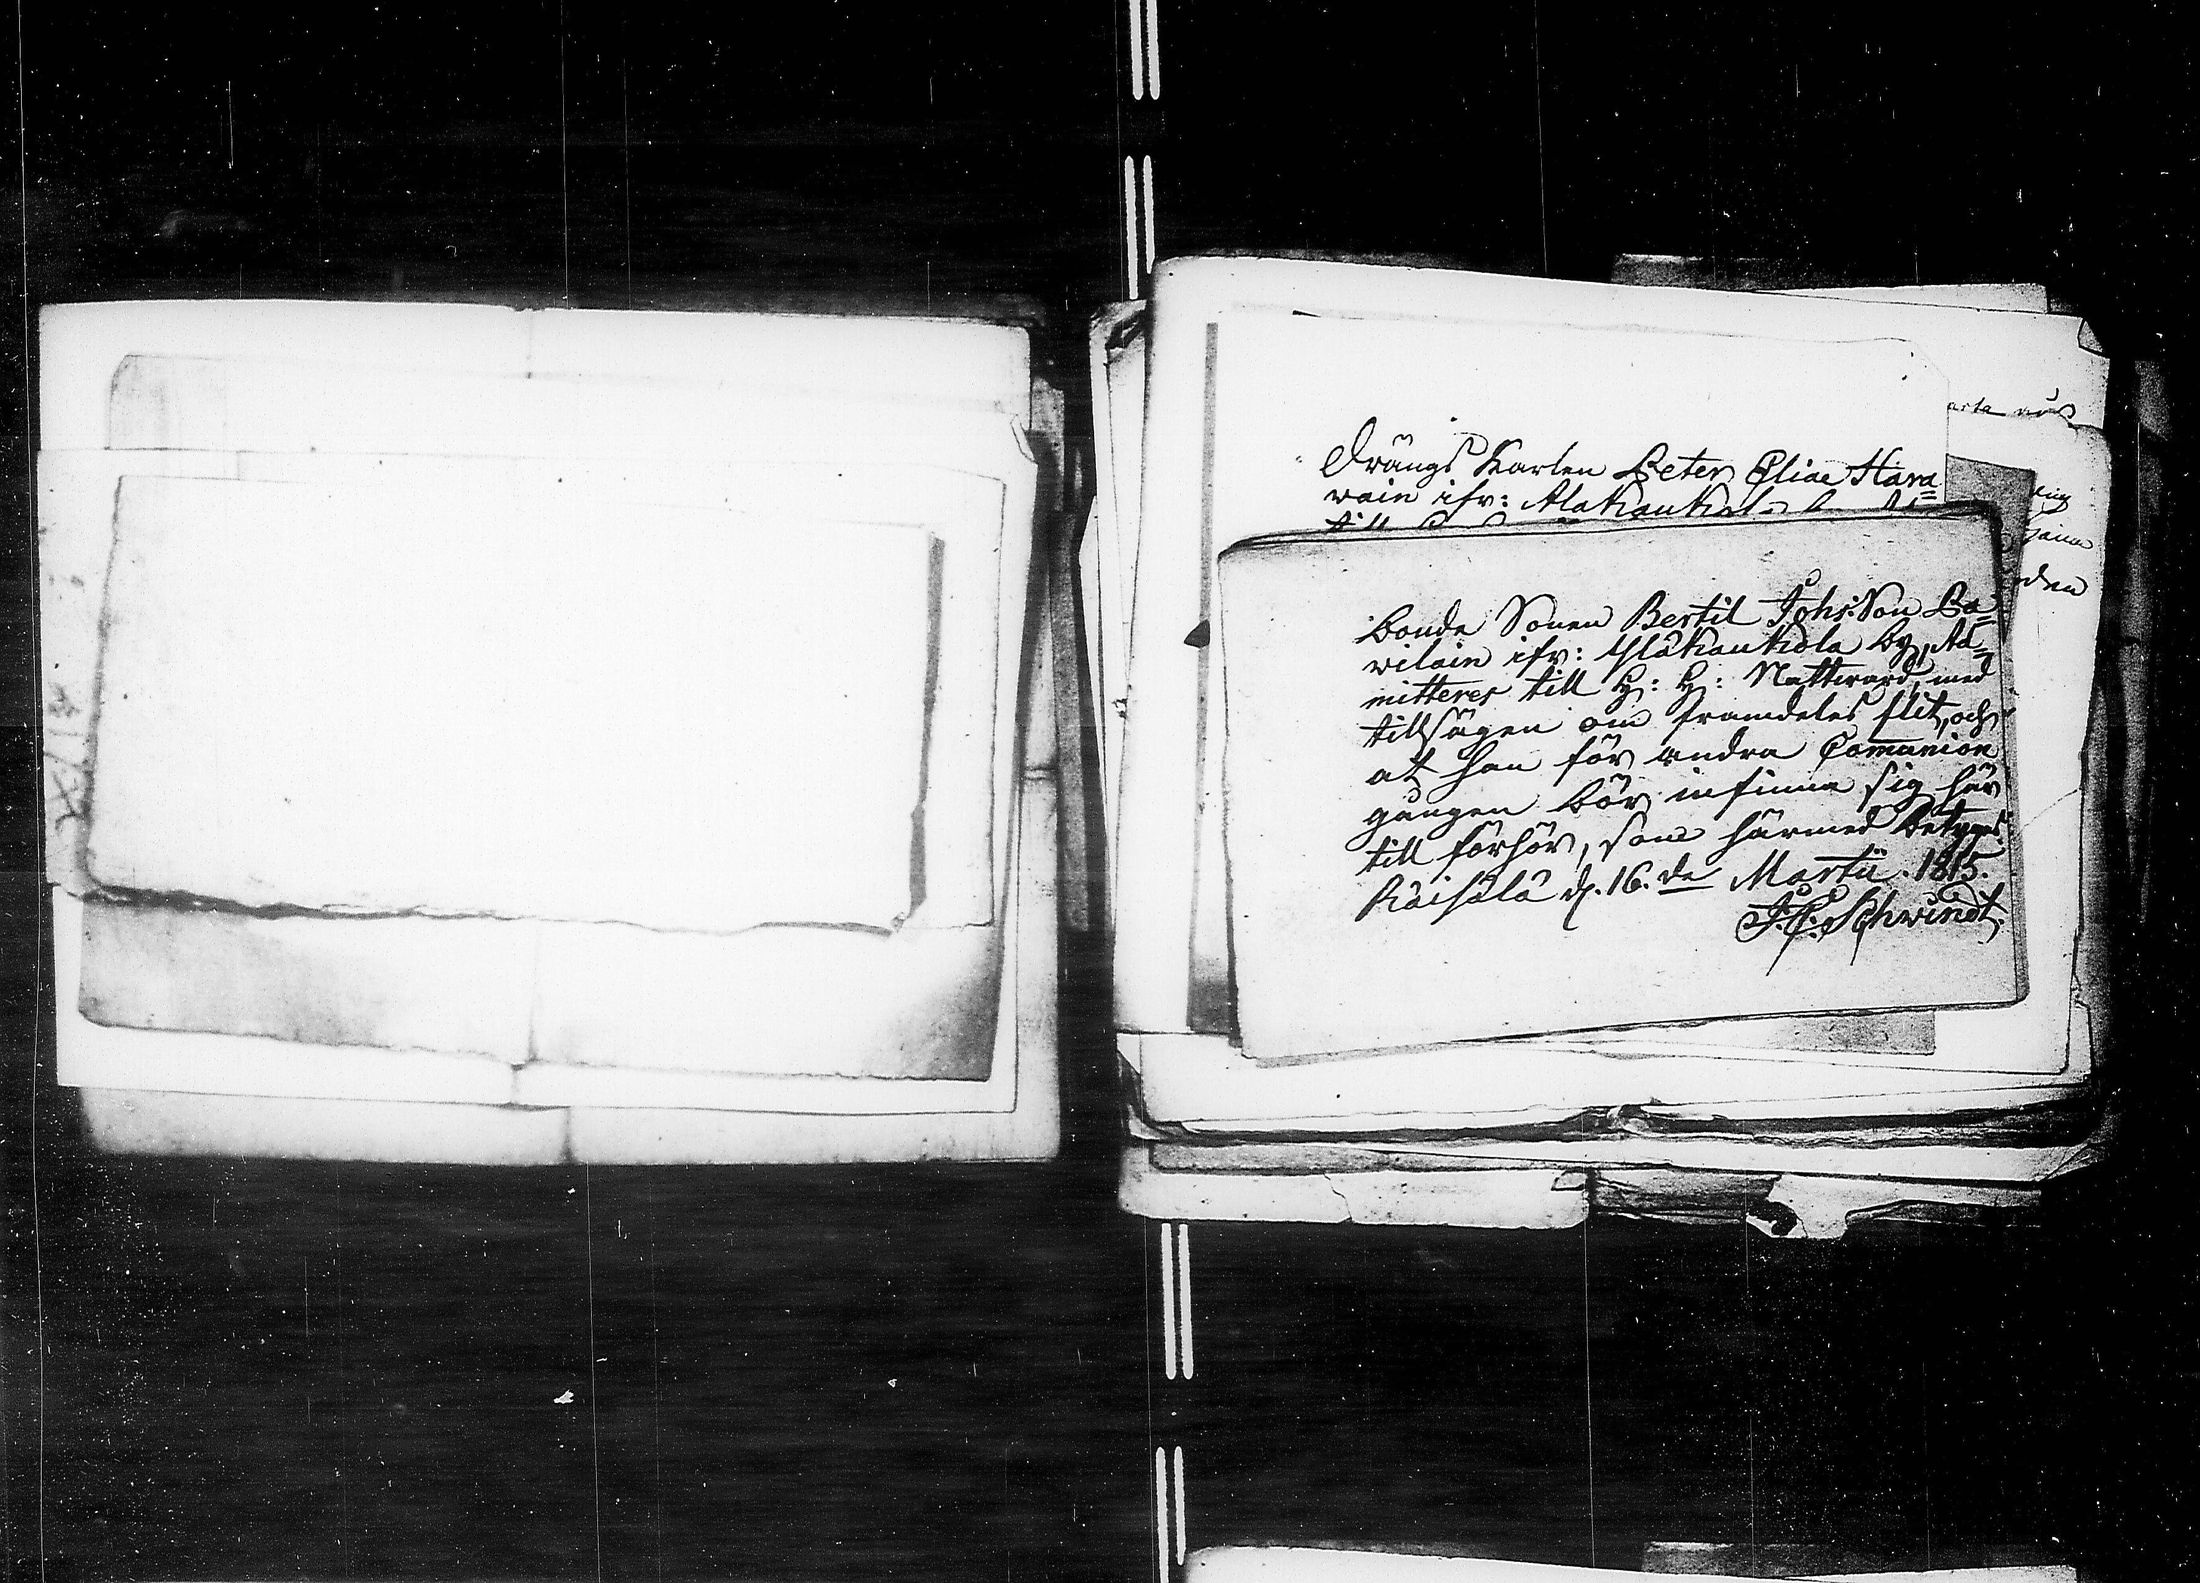 Drängs Karlen Peter Eliae Hära=
wain ifr: Alakaukola
Bonde Sonen Bertil Johs:Son Pa=
wilain ifr: Yläkaukola by, Ad=
mitteres till H: H: Nattward, med
tillsägen om framdeles flit, och
at han för andra Communion
gången bör infinna sig här
till förhör, som härmed betygas
Räisälä d. 16. de Martii. 1815.
J. C. Schwindt.